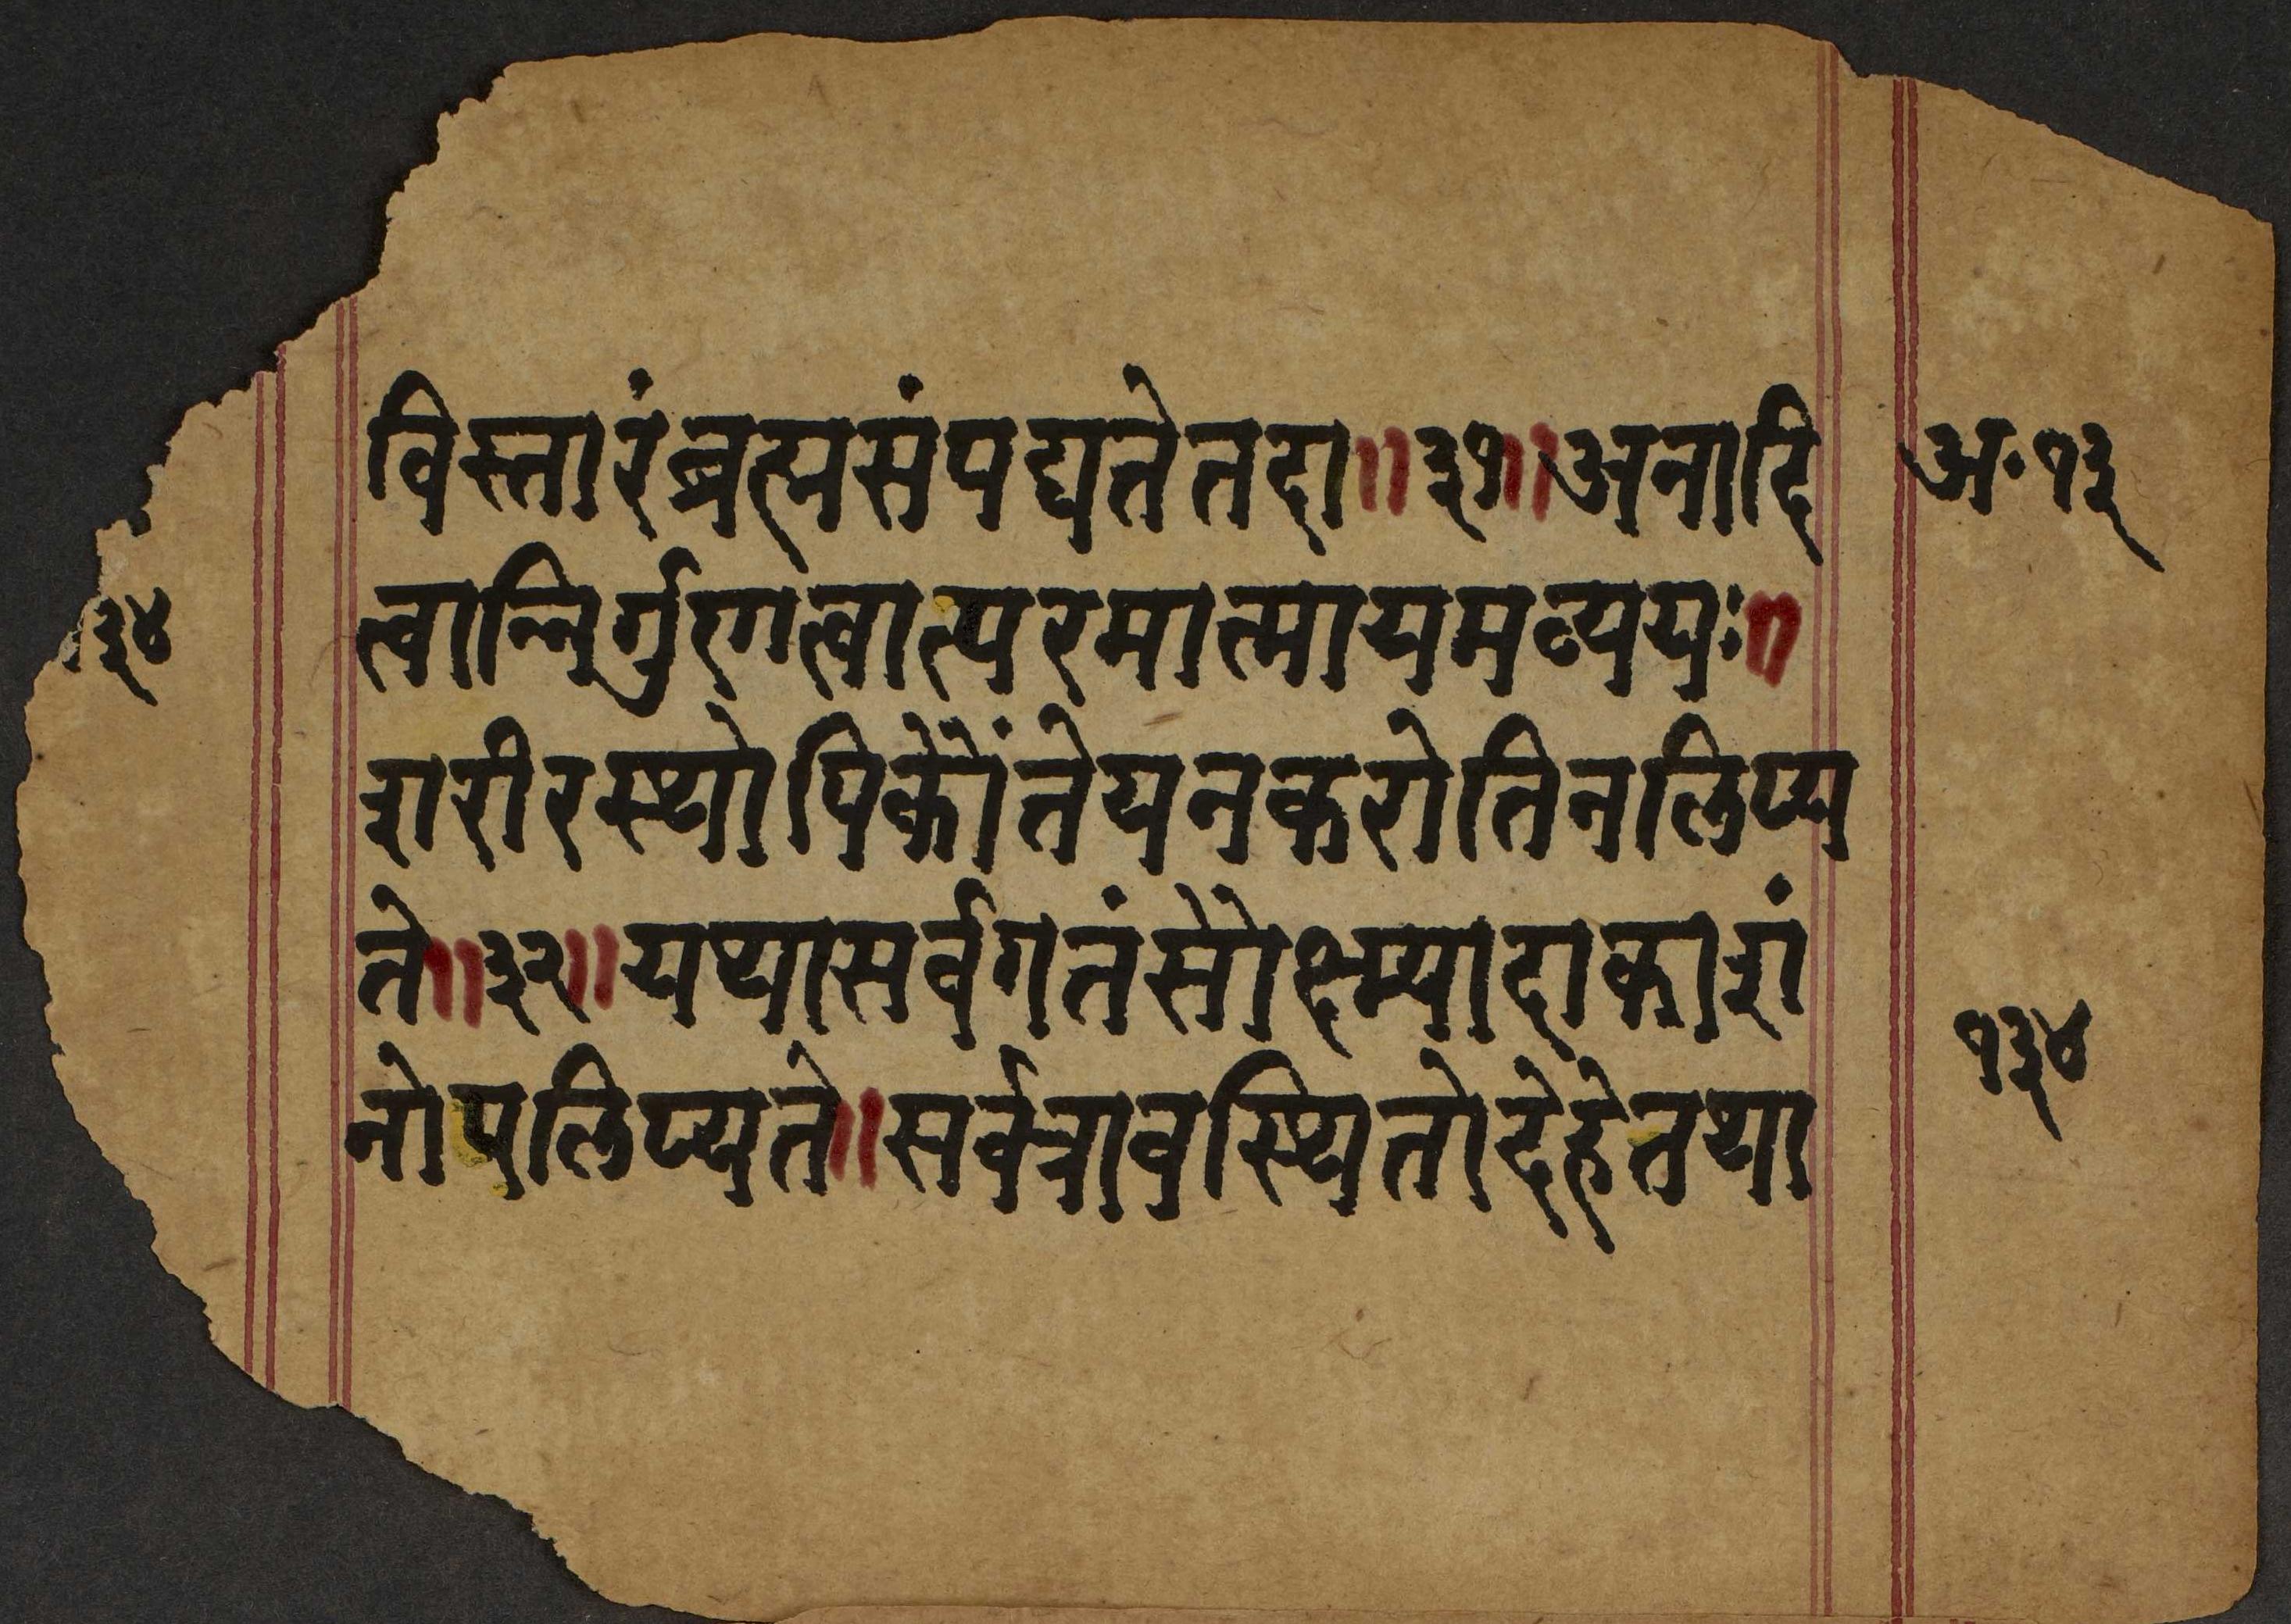 विस्तारंब्रह्मसंपद्यतेतदा॥३१॥अनादि
त्वान्निर्गुणत्वात्परमात्मायमव्ययः॥
शरीरस्थोपिकौंतेयनकरोतिनलिप्य
ते॥३२॥यथासर्वगतंसौक्ष्म्यादाकाशं
नोपलिप्यते॥सर्वत्रावस्थितोदेहेतथा
अ॰१३
३४
१३४